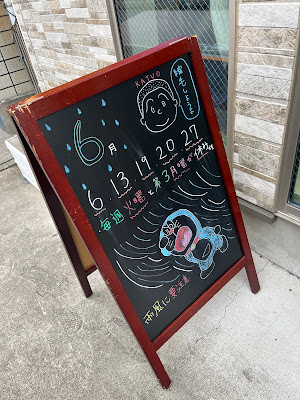 KATUO
しようよ
6月
6 13 19 20 27
毎週 火曜と第3月曜が休み
雨風に要注意